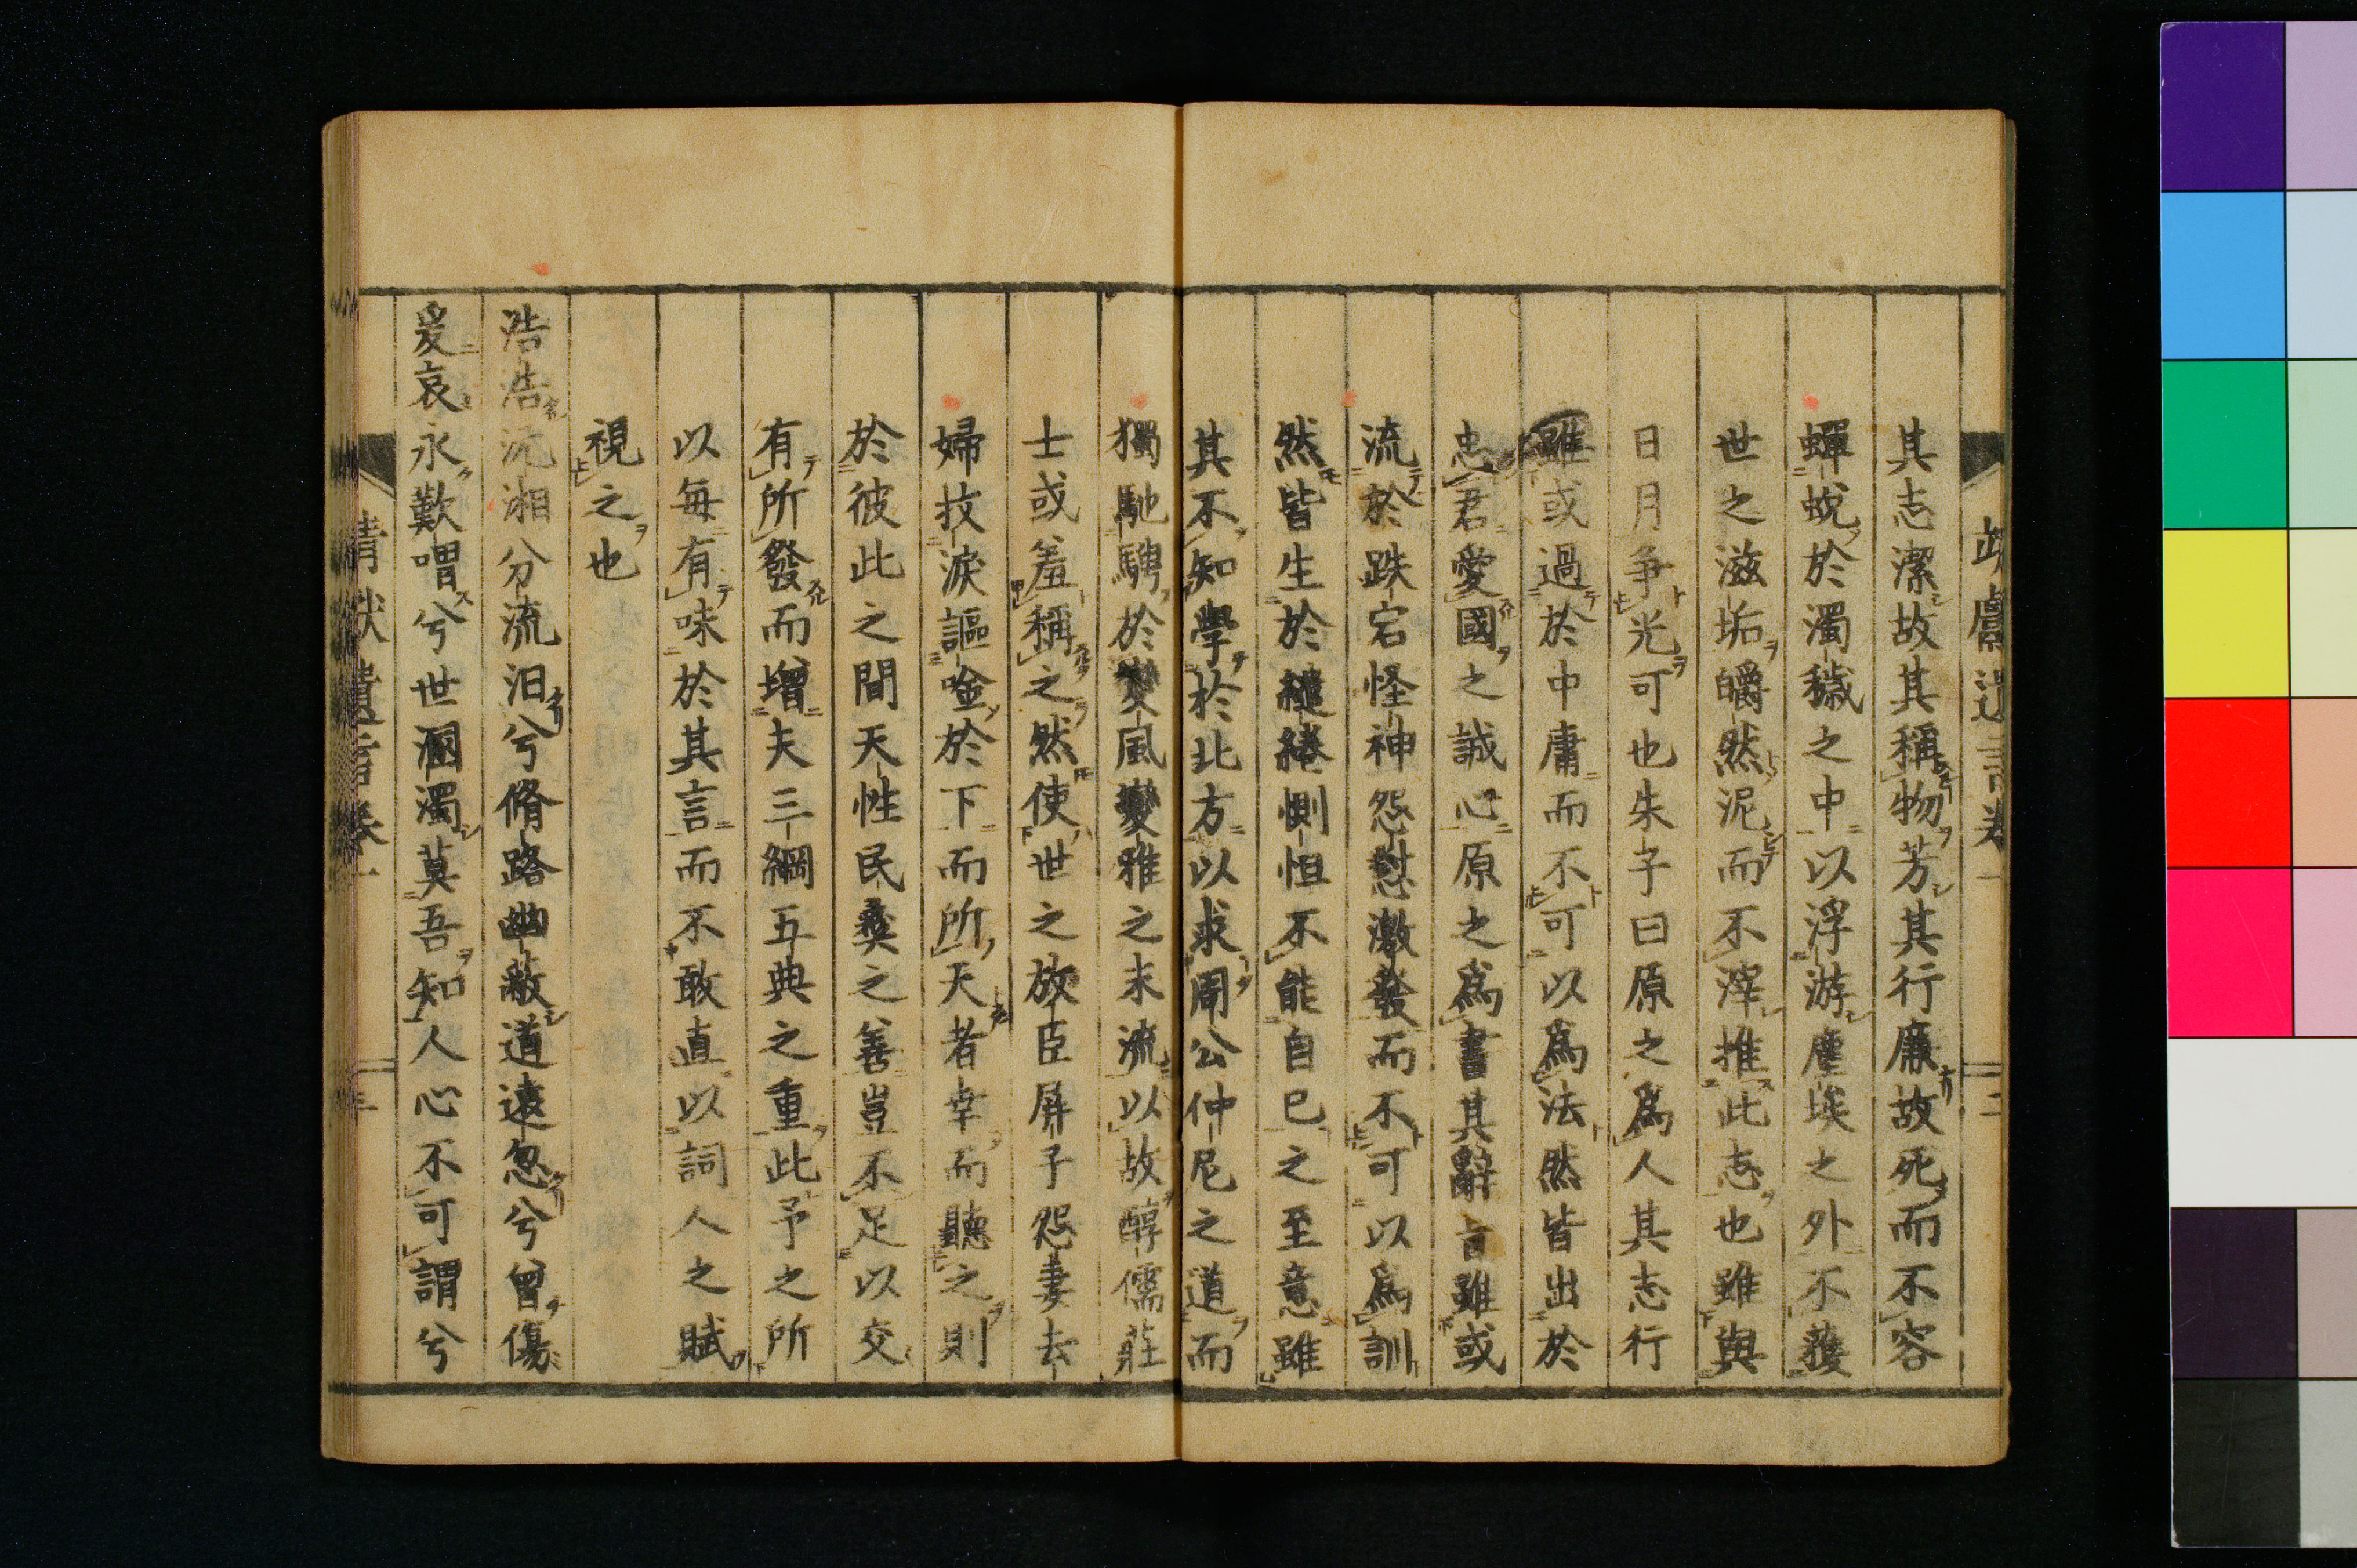 靖獻遺言卷一 二
其志潔故其稱物芳其行廉故死而不容
蟬蛻於濁穢之中以浮游塵埃之外不獲
世之滋垢皭然泥而不滓推此志也雖與
日月争光可也朱子曰原之爲人其志行
雖或過於中庸而不可以爲法然皆出於
忠君愛國之誠心原之爲書其辭旨雖或
流於跌宕怪神怨懟激發而不可以爲訓
然皆生於繾綣惻怛不能自已之至意雖
其不知學於北方以求周公仲尼之道而
獨馳騁於變風變雅之末流以故醇儒莊
士或羞稱之然使世之放臣屏子怨妻去
婦抆淚謳唫於下而所天者幸而聽之則
於彼此之間天性民彝之善豈不足以交
有所發而增夫三綱五典之重此予之所
以每有味於其言而不敢直以詞人之賦
視之也
浩浩沅湘分流汨兮脩路幽蔽道遠忽兮曾傷
爰哀永歎喟兮世溷濁莫吾知人心不可謂兮
靖獻遺言卷一 三